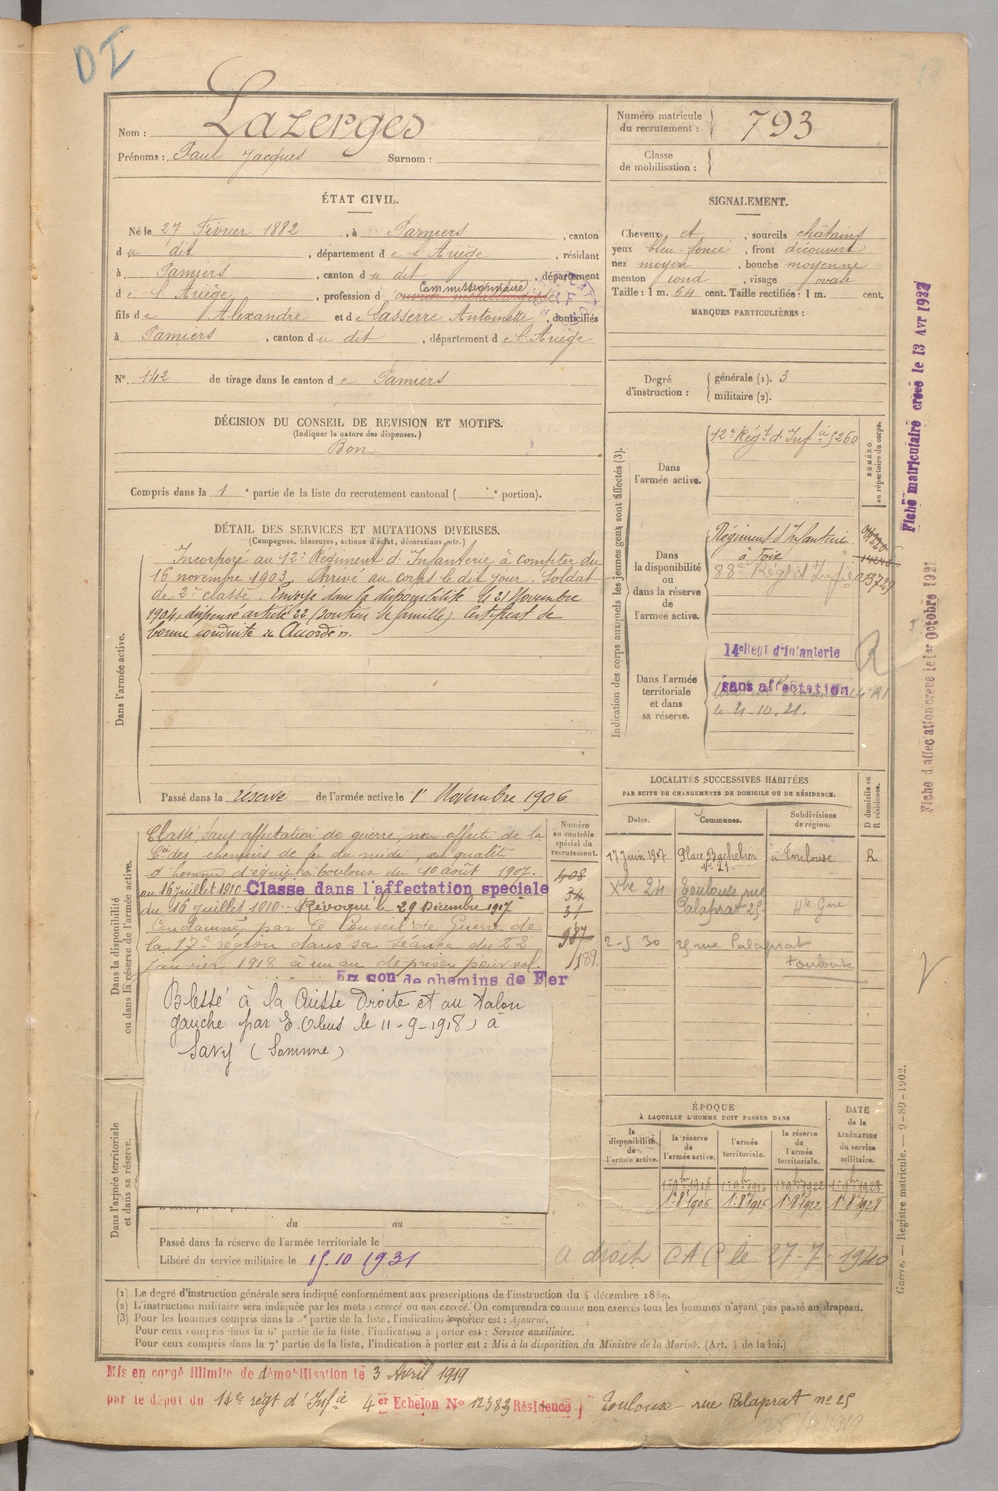 DI
Nom : Lazerges
Prénoms : Paul Jacques Surnom :
Numéro matricule du recrutement : 793
Classe de mobilisation :
ÉTAT CIVIL.
Né le 27 Février 1882, à Pamiers, canton
du dit, département de l'Ariège, résidant
à Pamiers, canton du dit, département
Commissionnaire
de l'Ariège, profession d ouvrier métallurgiste
fils de Alexandre et de Lasserre Antoinette, domiciliés
à Pamiers, canton du dit, département de l'Ariège
N°. 142 de tirage dans le canton de Pamiers
SIGNALEMENT.
Cheveux et, sourcils châtains
yeux bleu-foncé, front découvert
nez moyen, bouche moyenne
menton rond, visage ovale
Taille : 1 m. 64 cent. Taille rectifiée : 1 m. cent.
MARQUES PARTICULIÈRES :
Degré d'instruction : générale (1). 3
militaire (2).
DÉCISION DU CONSEIL DE REVISION ET MOTIFS.
(Indiquer la nature des dispenses.)
Bon
Compris dans la 1e partie de la liste du recrutement cantonal ( e portion).
DÉTAIL DES SERVICES ET MUTATIONS DIVERSES.
(Campagnes, blessures, actions d'éclat, décorations, etc.)
Dans l'armée active.
Incorporé au 12e Régiment d'Infanterie à compter du
16 novembre 1903, Arrivé au corps le dit jour. Soldat
de 2e classe. Envoyé dans la disponibilité le 21 Novembre
1904, dispensé article 22 (soutien de famille). Certificat de
bonne conduite "Accordé".
Passé dans la réserve de l'armée active le 1er Novembre 1906
Indication des corps auxquels les jeunes gens sont affectés (3).
NUMÉRO au répertoire du corps.
Dans l'armée active.
12e Régt d'Infie 5260
Dans la disponibilité ou dans la réserve de l'armée active.
Régiment d'Infanterie
à Foix
88e Régt d'Infie 05729
Dans l'armée territoriale et dans sa réserve.
14e Régt d'infanterie
sans affectation
le 21.10.21.
LOCALITÉS SUCCESSIVES HABITÉES
PAR SUITE DE CHANGEMENTS DE DOMICILE OU DE RÉSIDENCE.
Dates. Communes. Subdivisions de région. D domicile ou R résidence.
17 juin 1907 Place Bachelier n° 21 à Toulouse R
Xbre 24 Toulouse rue Palaprat 25 Hte Gne
2-5 30 25 rue Palaprat
Toulouse
Dans la disponibilité ou dans la réserve de l'armée active.
Numéro au contrôle spécial du recrutement.
Classé sans affectation de guerre, non affecté de la
Cie des chemins de fer du midi, en qualité
d'homme d'équipe à Toulouse du 10 août 1907.
au 16 juillet 1910 Classé dans l'affectation spéciale
du 16 juillet 1910 - Révoqué le 29 Décembre 1917
Condamné par le Conseil de Guerre de
la 17e région dans sa séance du 22
janvier 1918 à un an de prison pour vol.
de chemins de Fer
408
34
31
987
Blessé à la Cuisse Droite et au talon
gauche par E. Obus le 11-9-1918, à
Savy (Somme)
Dans l'armée territoriale et dans sa réserve.
du au
Passé dans la réserve de l'armée territoriale le
Libéré du service militaire le 15.10 1931
ÉPOQUE
À LAQUELLE L'HOMME DOIT PASSER DANS
DATE de la LIBÉRATION du service militaire.
la disponibilité de l'armée active.
la réserve de l'armée active.
l'armée territoriale.
la réserve de l'armée territoriale.
1er 9bre 1906 1er 9bre 1916 1er 9bre 1922 1er 9bre 1928
1er 8bre 1906 1er 8bre 1916 1er 8bre 1922 1er 8bre 1928
a droit CAC le 27-7-1940
(1) Le degré d'instruction générale sera indiqué conformément aux prescriptions de l'instruction du 4 décembre 1889.
(2) L'instruction militaire sera indiquée par les mots : exercé ou non exercé. On comprendra comme non exercés tous les hommes n'ayant pas passé au drapeau.
(3) Pour les hommes compris dans la 5e partie de la liste, l'indication à porter est : Ajourné.
Pour ceux compris dans la 6e partie de la liste, l'indication à porter est : Service auxiliaire.
Pour ceux compris dans la 7e partie de la liste, l'indication à porter est : Mis à la disposition du Ministre de la Marine. (Art. 4 de la loi.)
Mis en congé illimité de démobilisation le 3 Avril 1919
par le dépôt du 14e régt d'Infie 4er Echelon N° 12383 Résidence Toulouse rue Palaprat n° 25
Fiche matriculaire créée le 13 Avr 1932
Fiche d'affectation créée le 1er Octobre 1921
Guerre. — Registre matricule. — 9-89-1902.